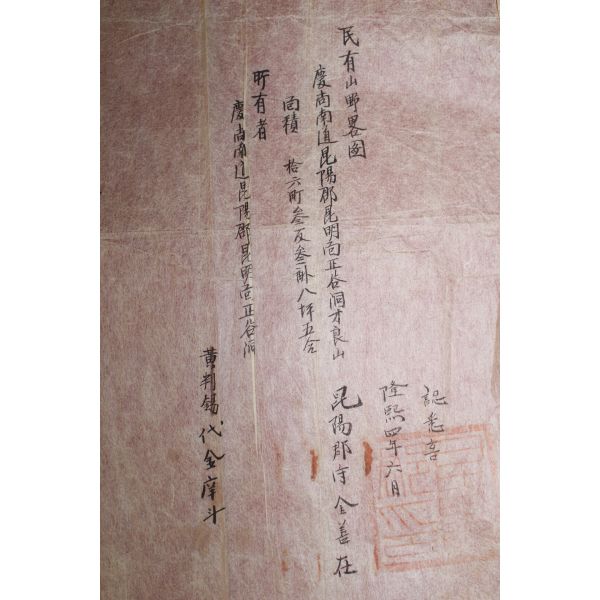 民有山野畧図
慶尚南道昆陽郡昆明面正谷洞才良山
面積 拾六町叁反叁畝八坪五合
所有者
慶尚南道昆陽郡昆明面正谷洞
黃判錫代金
認
隆熙四年六月
昆陽郡守金善在